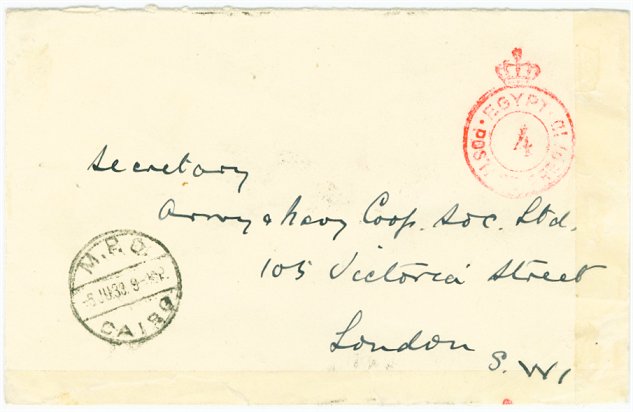 EGYPT
POST
4
Secretary
Army & Navy Coop. Soc. Ltd.
105 Victoria Street
London S.W1
M.P.O.
CAIRO